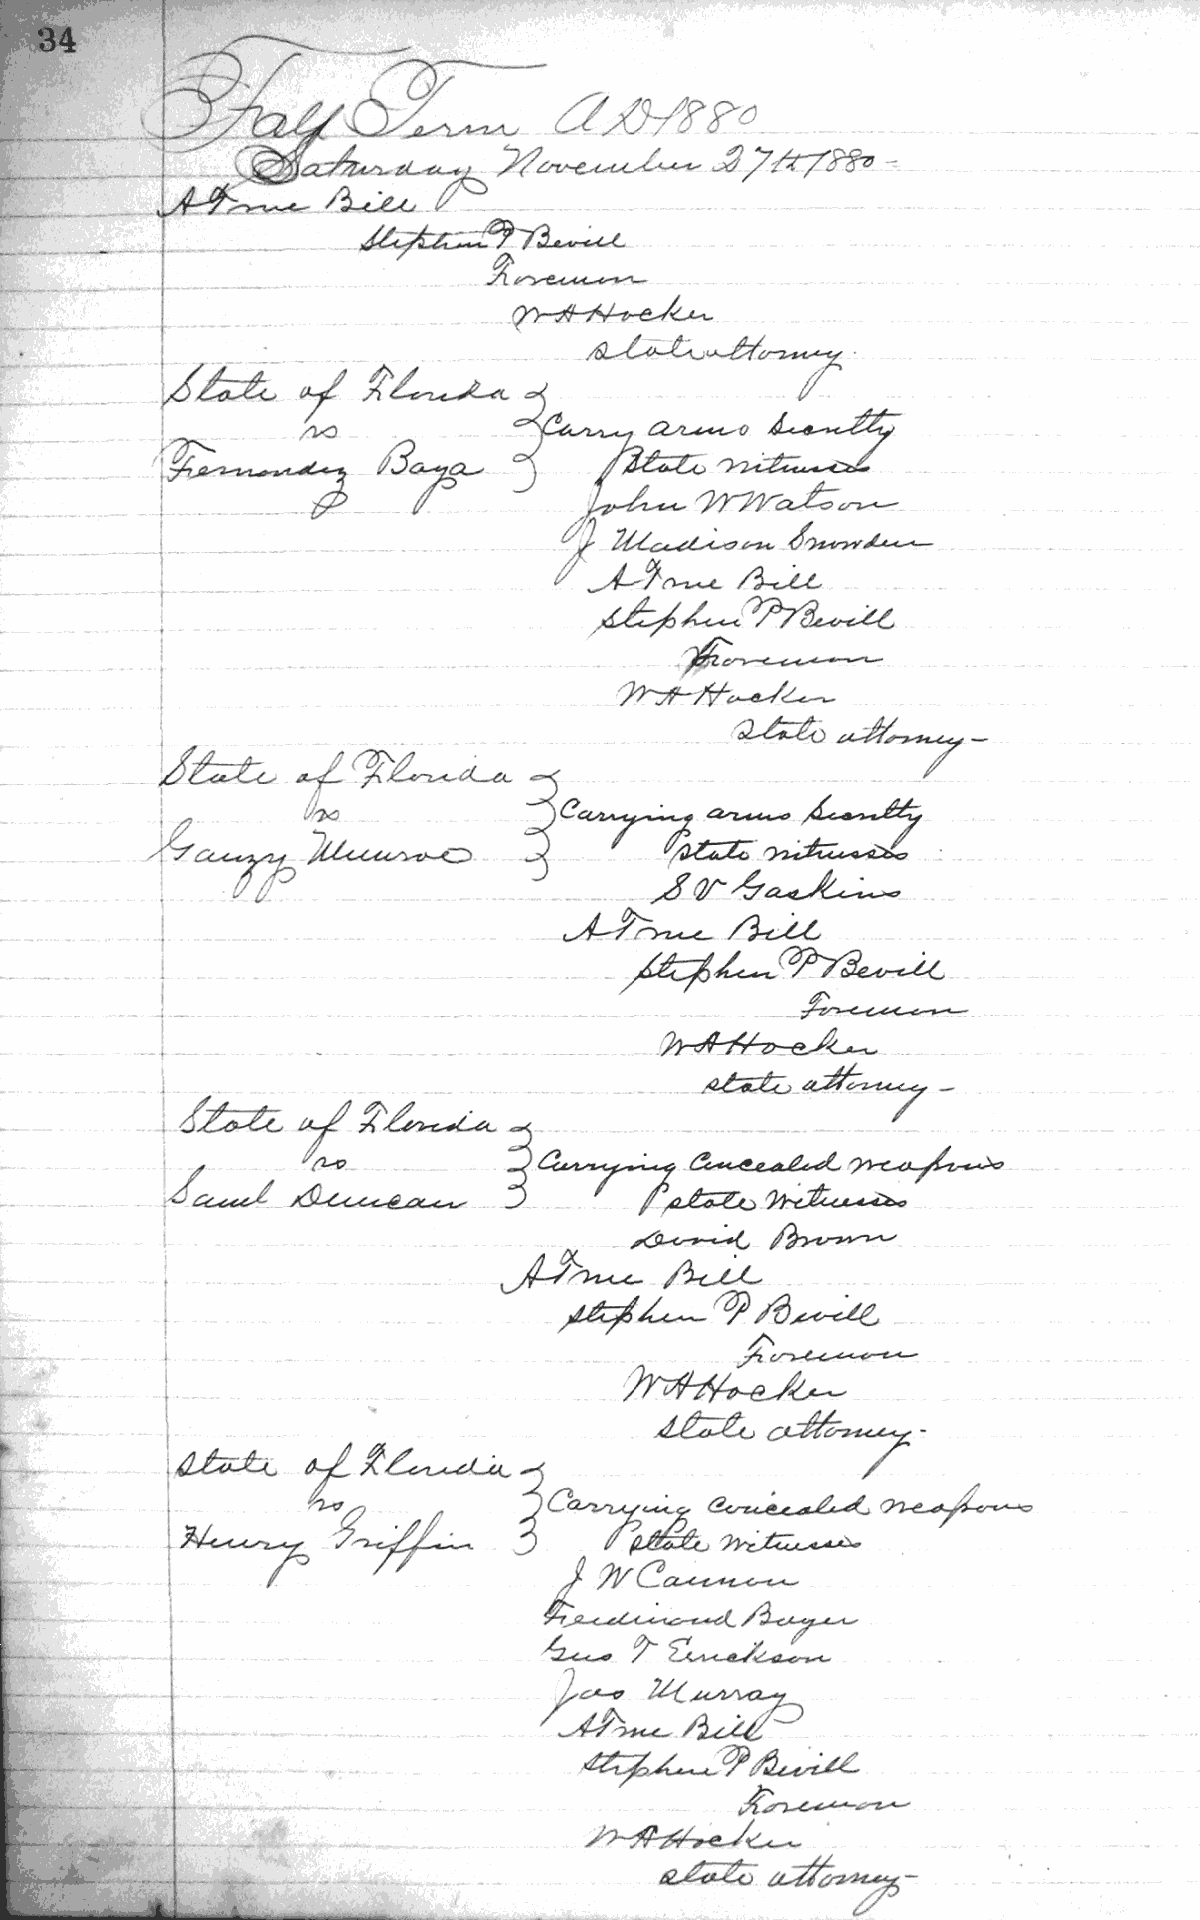 34
Fall Term A D 1880
Saturday November 27th 1880 -
A True Bill
Stephen P Bevill
Foreman
W A Hocker
state attorney.
State of Florida
vs
Carry arms Secretly
Fernandez Baya
State Witnesses
John W Watson
J Madison Snowden
A True Bill
Stephen P Bevill
Foreman
W A Hocker
State attorney -
State of Florida
vs
Carrying arms Secretly
Gauzy Munroe
state witnesses
S V Gaskins
A True Bill
Stephen P Bevill
Foreman
W A Hocker
state attorney -
State of Florida
vs
Carrying Concealed weapons
Saml Duncan
state Witnesses
David Brown
A True Bill
Stephen P Bevill
Foreman
W A Hocker
state attorney -
State of Florida
vs
Carrying concealed weapons
Henry Griffin
State Witnesses
J W Cannon
Ferdinand Bayer
Gus T Errickson
Jas Murray
A True Bill
Stephen P Bevill
Foreman
W A Hocker
state attorney -